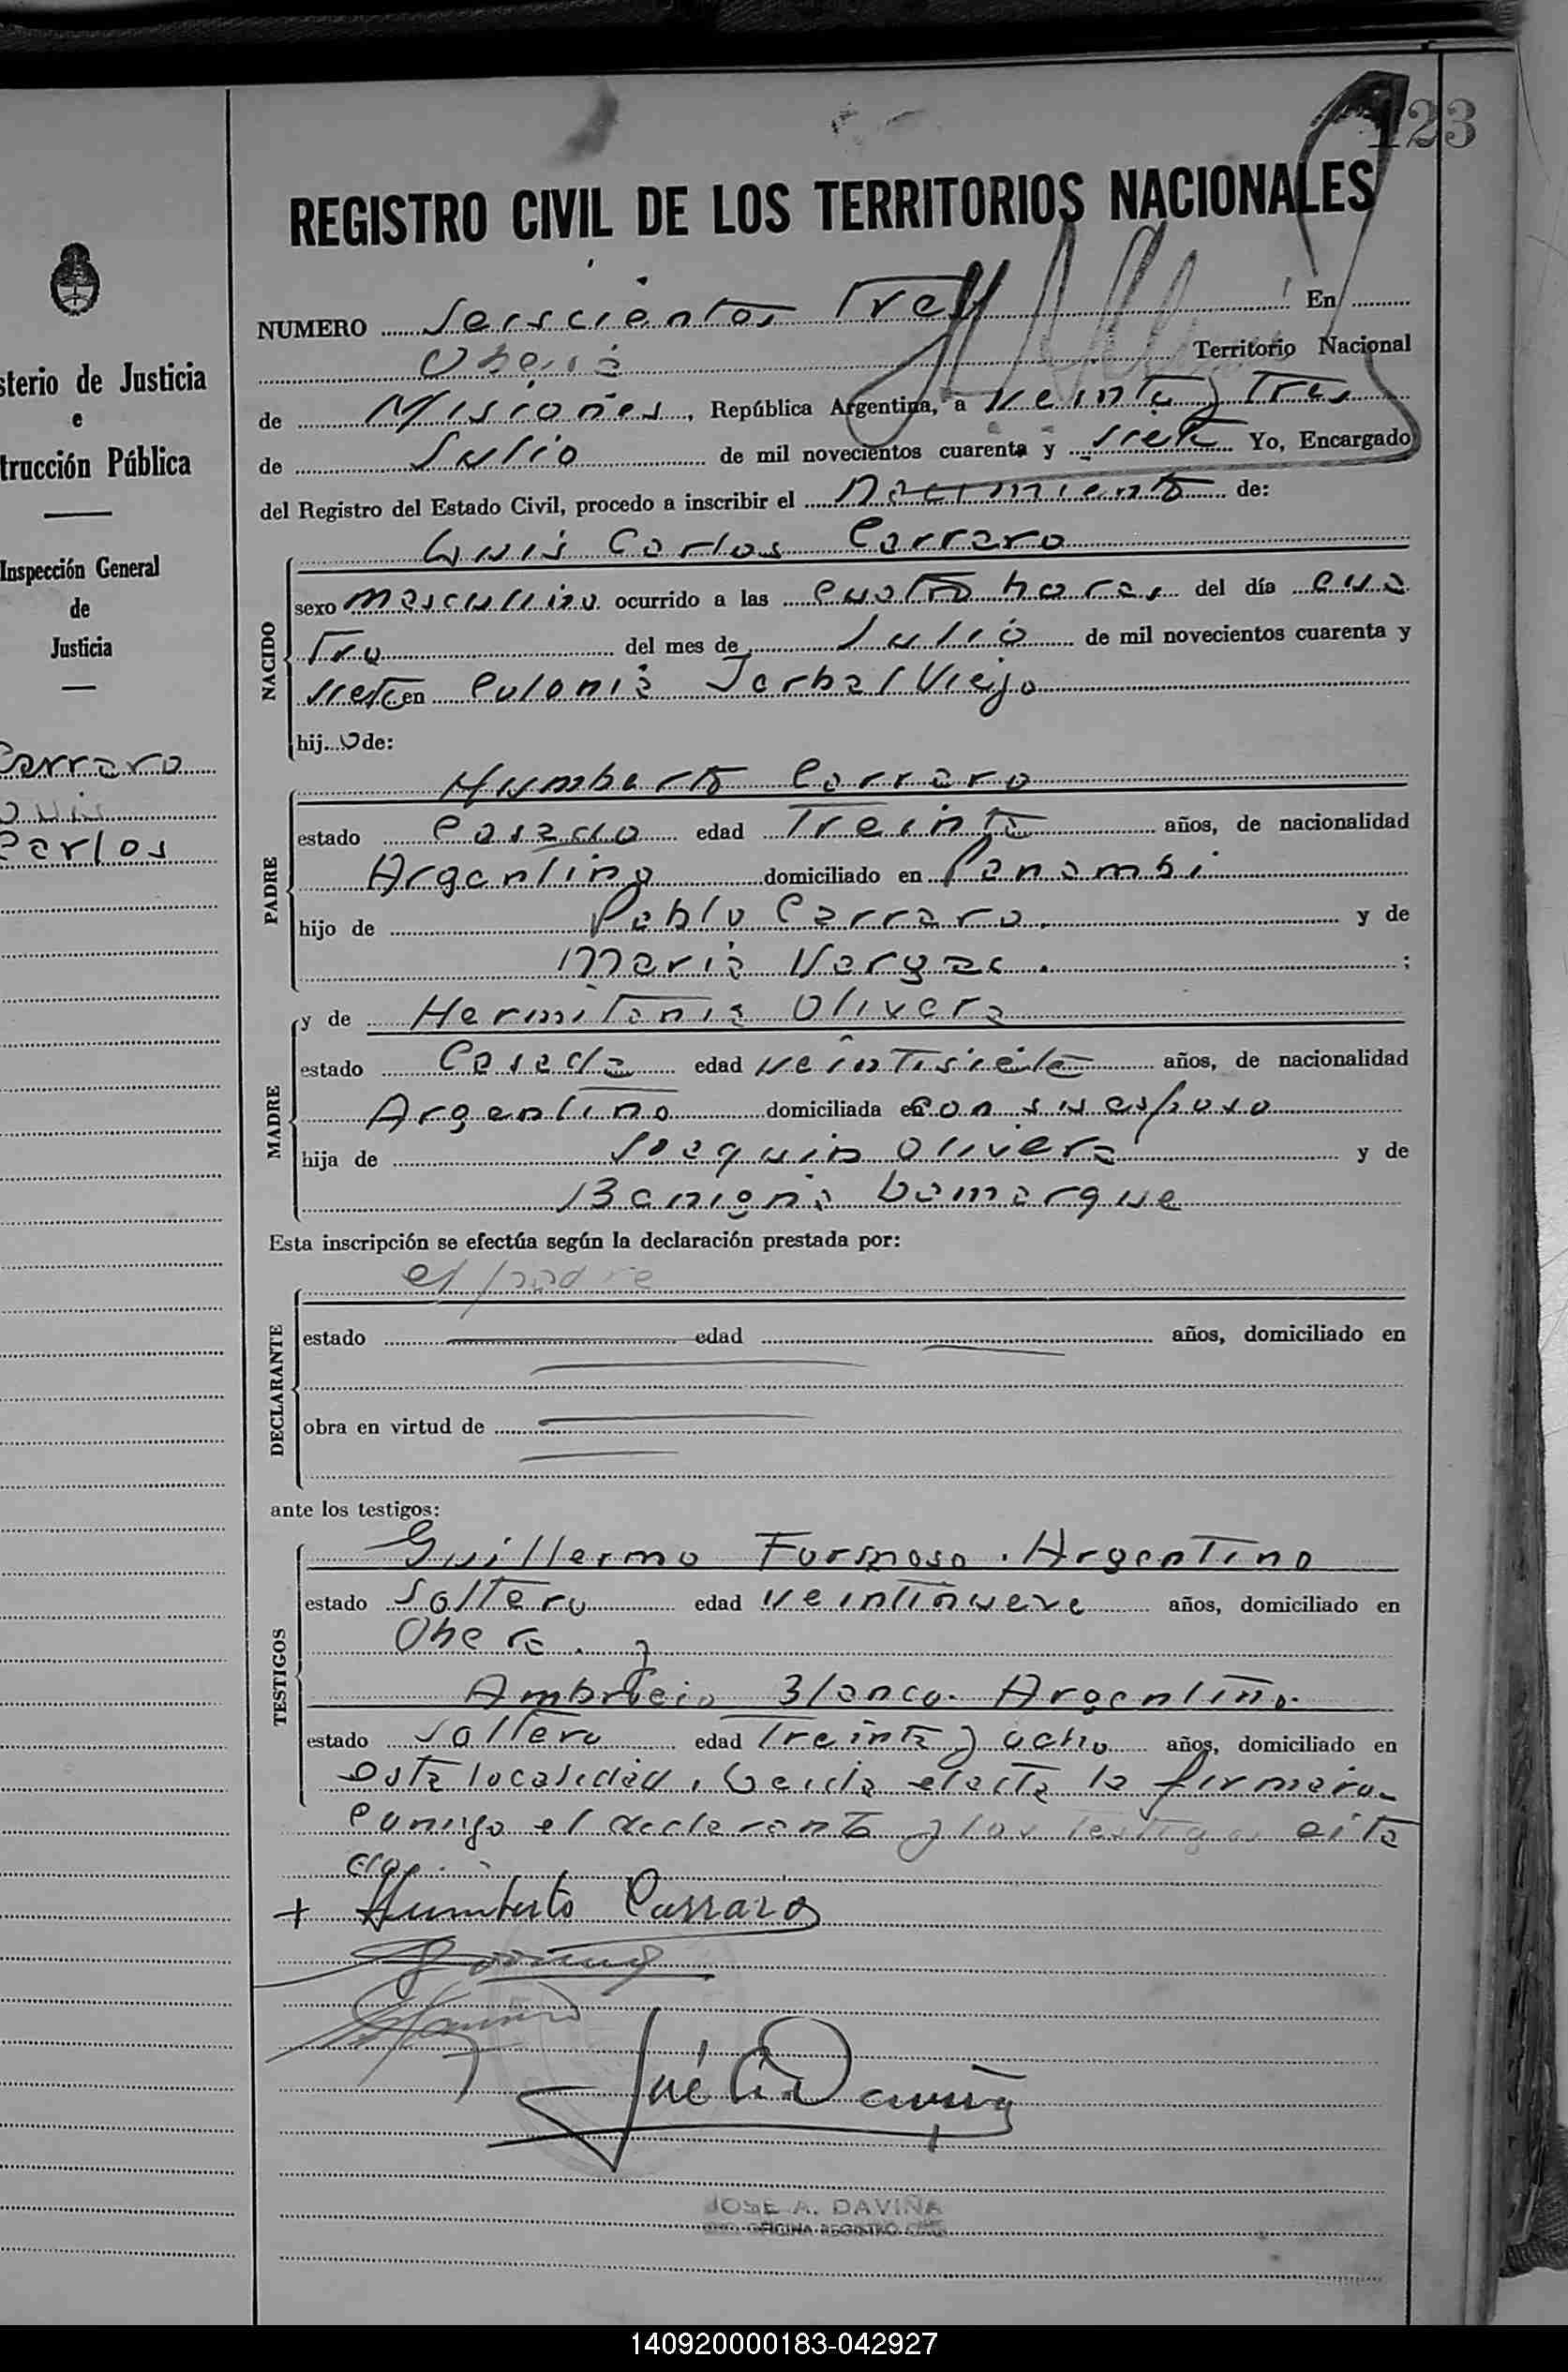 123
REGISTRO CIVIL DE LOS TERRITORIOS NACIONALES
NUMERO Seiscientos Tres En
Oberá Territorio Nacional
de Misiones, República Argentina, a veinte y Tres
de Julio de mil novecientos cuarenta y siete Yo, Encargado
del Registro del Estado Civil, procedo a inscribir el Nacimiento de:
NACIDO
Luis Carlos Carraro
sexo masculino ocurrido a las cuatro horas del día cua
tro del mes de Julio de mil novecientos cuarenta y
siete en Colonia Yerbal Viejo
hijo de:
PADRE
Humberto Carraro
estado Casado edad Treinta años, de nacionalidad
Argentino domiciliado en Panambi
hijo de Pablo Carraro y de
Maria Vargas ;
MADRE
y de Hermitania Olivera
estado Casada edad veintisiete años, de nacionalidad
Argentino domiciliada en con su esposo
hija de Joaquin Olivera y de
Benigna Lamarque
Esta inscripción se efectúa según la declaración prestada por:
DECLARANTE
el padre
estado edad años, domiciliado en
obra en virtud de
ante los testigos:
TESTIGOS
Guillermo Formoso. Argentino
estado Soltero edad veintinueve años, domiciliado en
Obera. y
Ambrocio Blanco. Argentino.
estado soltero edad Treinta y ocho años, domiciliado en
esta localidad, Leida el acta la firmaron
conmigo el declarante y los testigos cita
dos.
+ Humberto Carraro
José A. Daviña
JOSE A. DAVIÑA
OFICINA REGISTRO CIVIL
sterio de Justicia
e
trucción Pública
Inspección General
de
Justicia
Carraro
Luis
Carlos
140920000183-042927